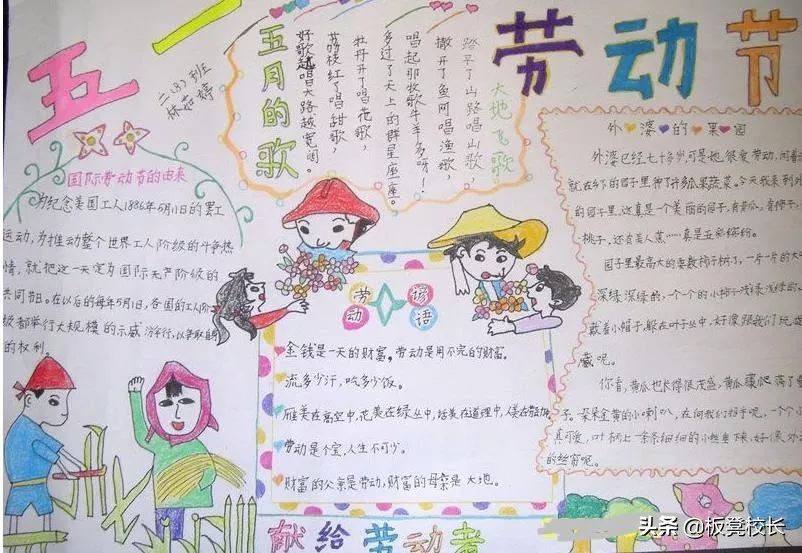 五一
劳动节
二(3)班
林茹婷
五月的歌
大地飞歌
踏平了山路唱山歌,
撒开了鱼网唱渔歌,
唱起那牧歌牛羊多呀!
多过了天上的群星座座。
牡丹开了唱花歌,
荔枝红了唱甜歌,
好歌越唱大路越宽阔。
国际劳动节的由来
为纪念美国工人1886年5月1日的罢工
运动,为推动整个世界工人阶级的斗争热
情,就把这一天定为国际无产阶级的
共同节日。在以后的每年5月1日,各国的工人阶
级都举行大规模的示威游行,以争取自
的权利。
劳动谚语
金钱是一天的财富。劳动是用不完的财富。
流多少汗,吃多少饭。
雁美在高空中,花美在绿丛中,话美在道理中,人美在
劳动是个宝,人生不可少。
财富的父亲是劳动,财富的母亲是大地。
外婆的果园
外婆已经七十多岁,可是她很爱劳动,闲着
就在乡下的园子里种了许多瓜果蔬菜。今天我来到外
的园子里,这真是一个美丽的园子,有黄瓜,有柿子,
桃子,还有美人蕉……真是五彩缤纷。
园子里最高大的要数柿子树了,一片一片的大
深绿深绿的,一个个的小柿子浅绿浅绿的,
戴着小帽子,躲在叶子丛中,好像跟我们玩
藏呢。
你看,黄瓜也长得很茂盛,黄瓜藤爬满了
子,朵朵金黄的小喇叭,在向我们招手呢,一个个
真可爱,叶柄上一条条细细的小丝垂下来,好像外
的丝窗呢。
献给劳动者
头条 @板凳校长